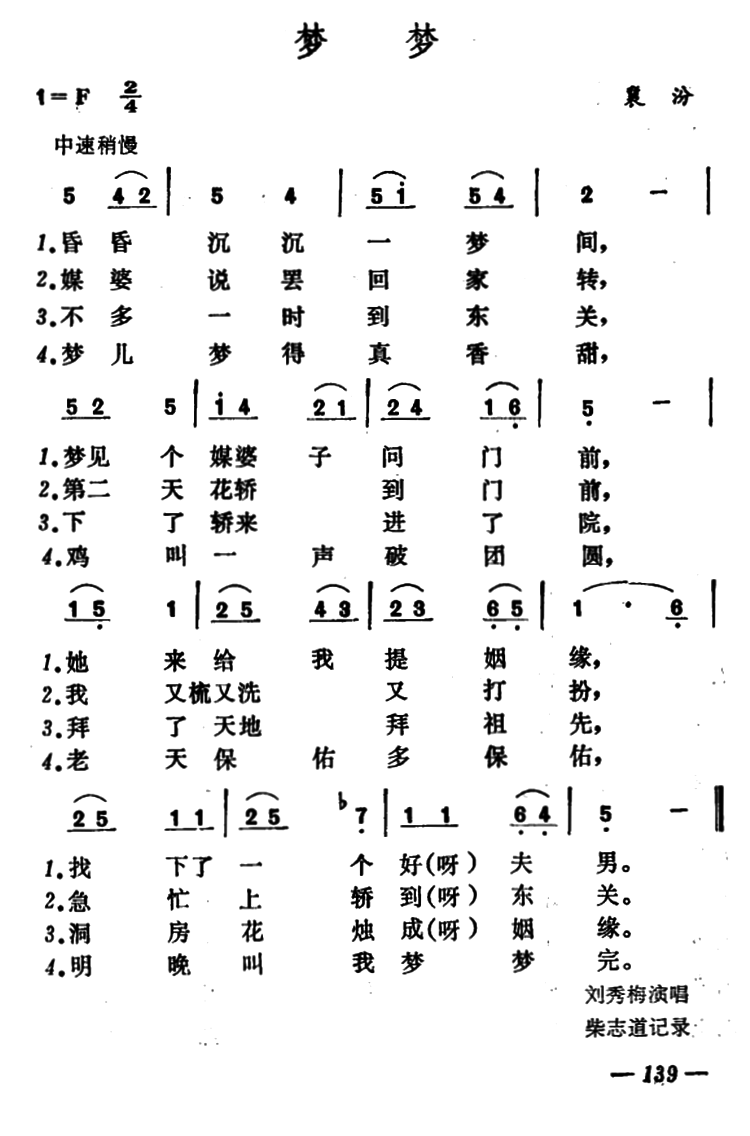 梦 梦
1=F 2/4 襄汾
中速稍慢
5 4 2 | 5 4 | 5 i 5 4 | 2 — |
1.昏昏 沉 沉 一 梦 间，
2.媒婆 说 罢 回 家 转，
3.不多 一 时 到 东 关，
4.梦儿 梦 得 真 香 甜，
5 2 5 | i 4 2 1 | 2 4 1 6 | 5 — |
1.梦见 个 媒婆 子 问 门 前，
2.第二 天 花轿 到 门 前，
3.下 了 轿来 进 了 院，
4.鸡 叫 一 声 破 团 圆，
1 5 1 | 2 5 4 3 | 2 3 6 5 | 1 · 6 |
1.她 来 给 我 提 姻 缘，
2.我 又梳又洗 又 打 扮，
3.拜 了 天地 拜 祖 先，
4.老 天 保 佑 多 保 佑，
2 5 1 1 | 2 5 ♭7 | 1 1 6 4 | 5 — ‖
1.找 下了 一 个 好(呀) 夫 男。
2.急 忙 上 轿 到(呀) 东 关。
3.洞 房 花 烛 成(呀) 姻 缘。
4.明 晚 叫 我 梦 梦 完。
刘秀梅演唱
柴志道记录
— 139 —